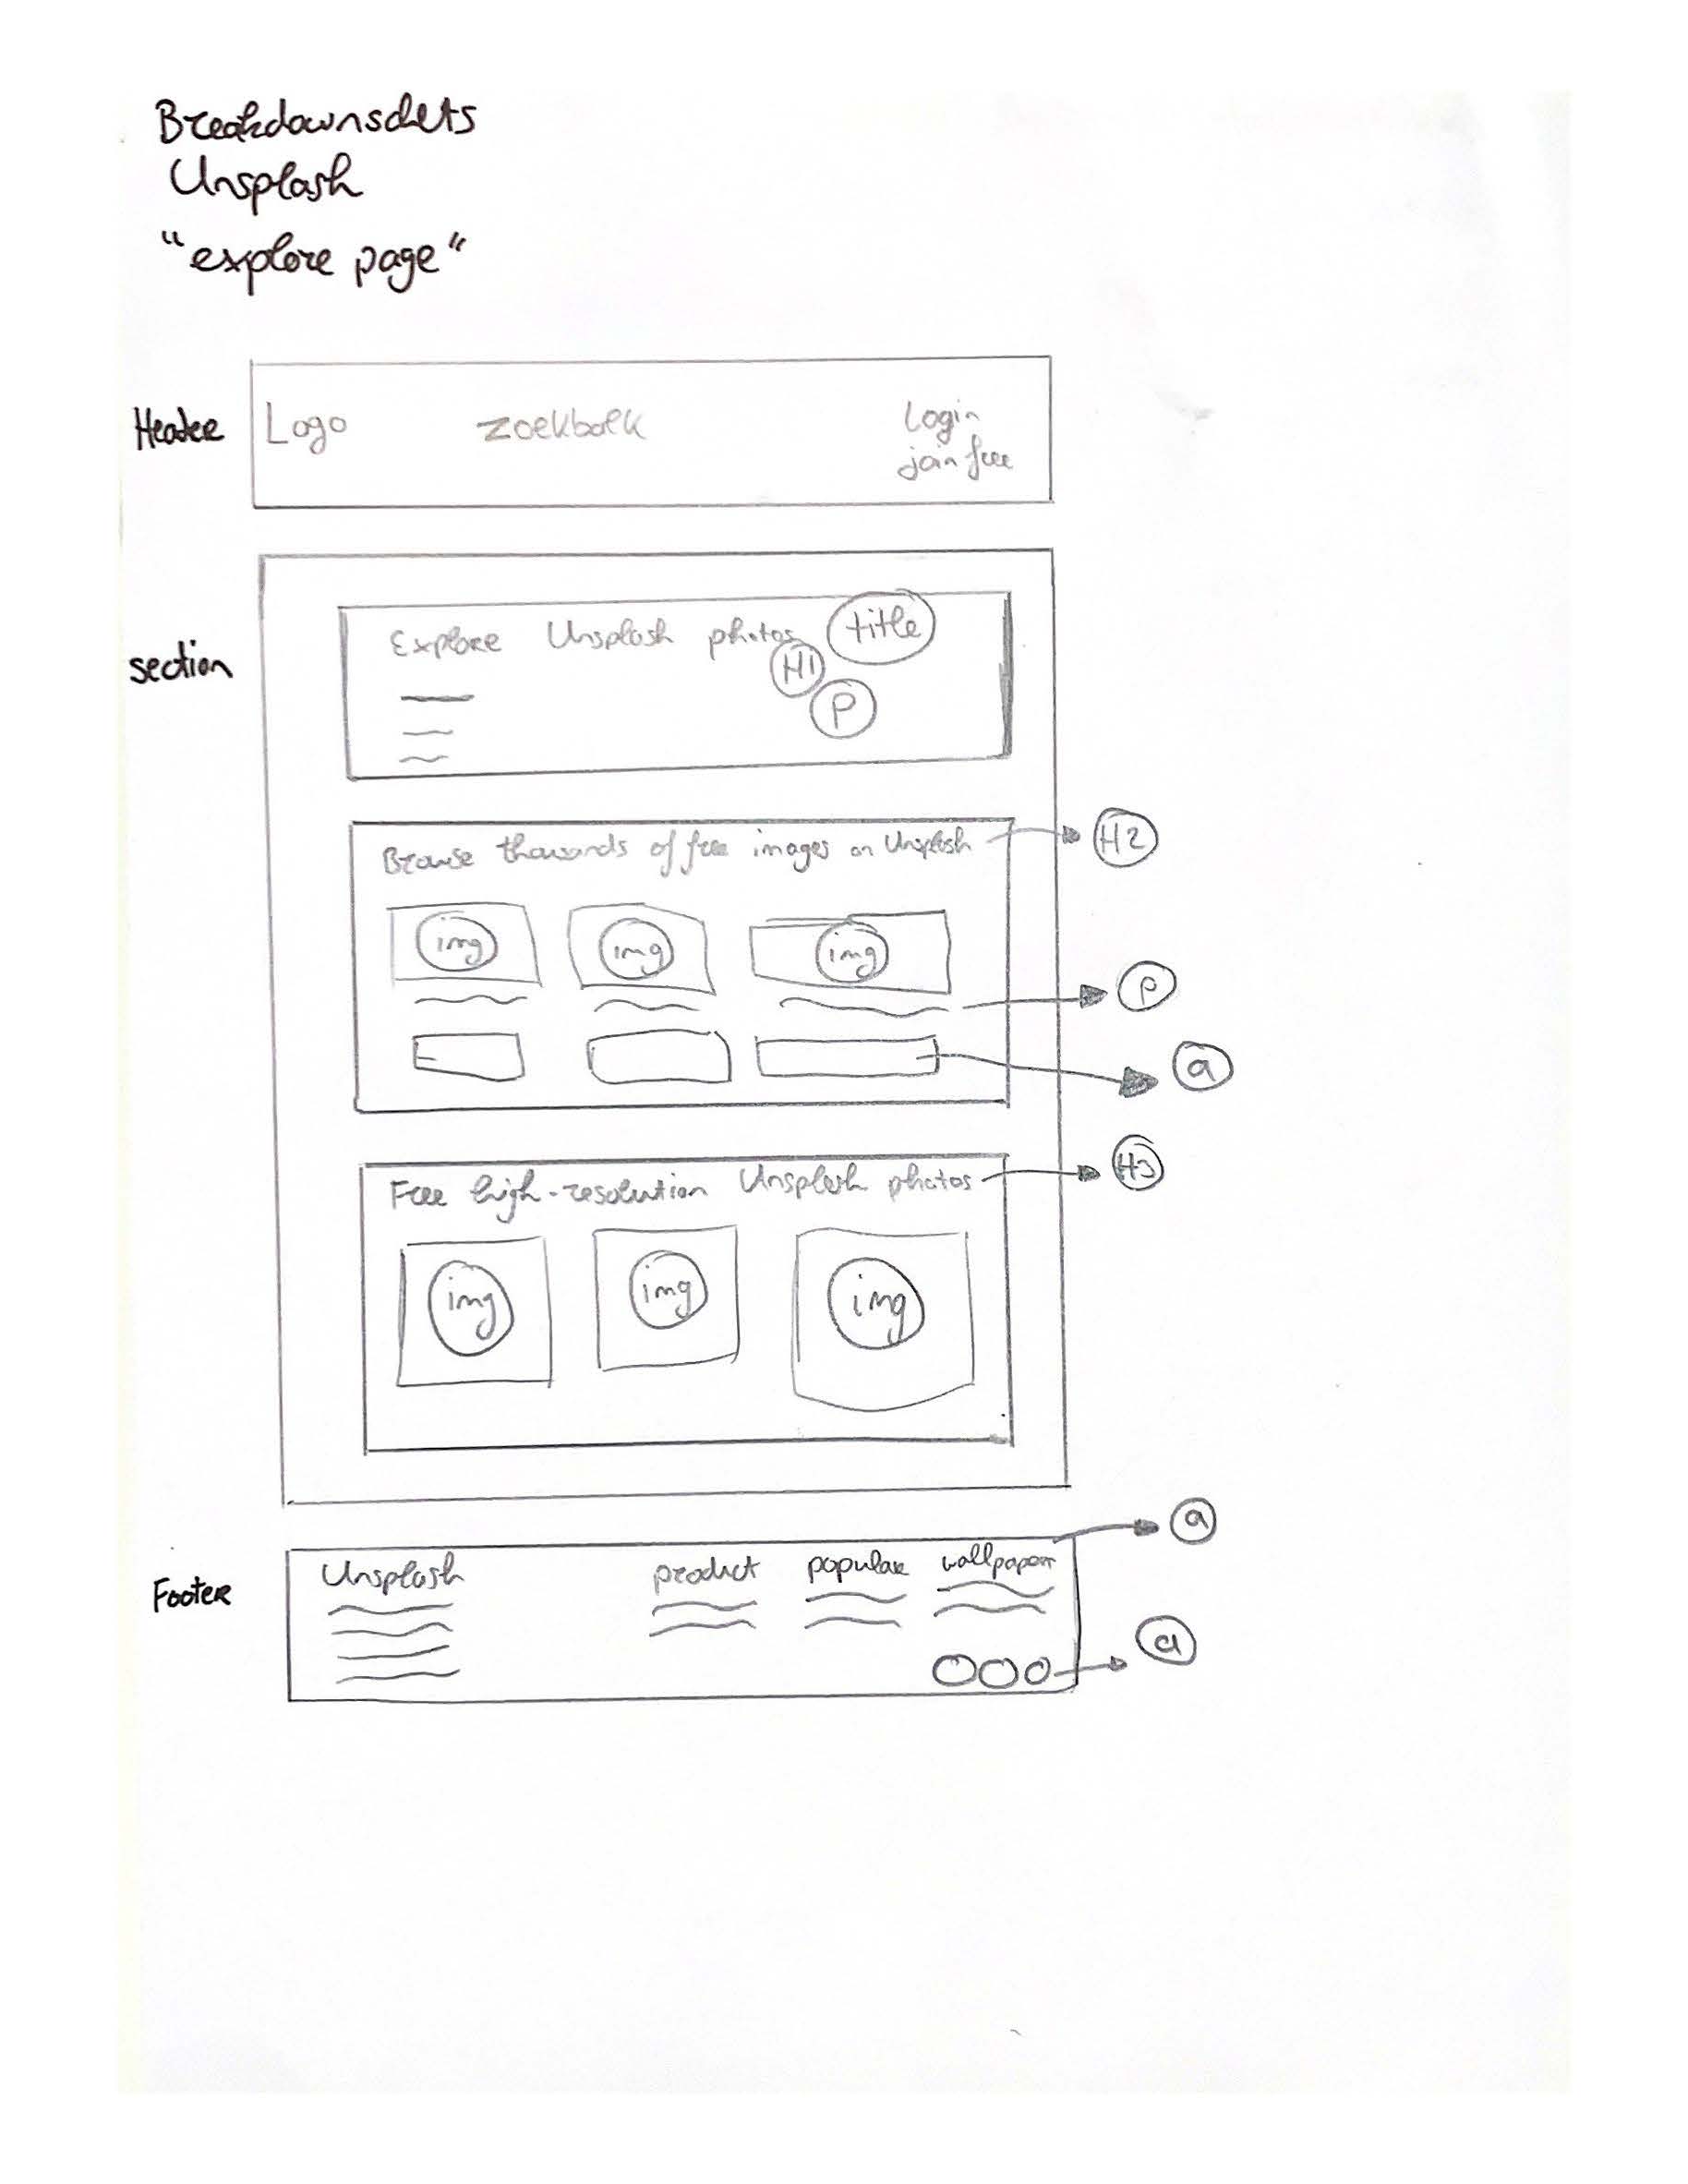 Breakdownschets
Unsplash
"explore page"
Header
Logo
zoekbalk
Login
join free
section
Explore Unsplash photos
title
H1
P
Browse thousands of free images on Unsplash
H2
img
img
img
P
a
Free high-resolution Unsplash photos
H3
img
img
img
a
Footer
Unsplash
product
popular
wallpapers
a